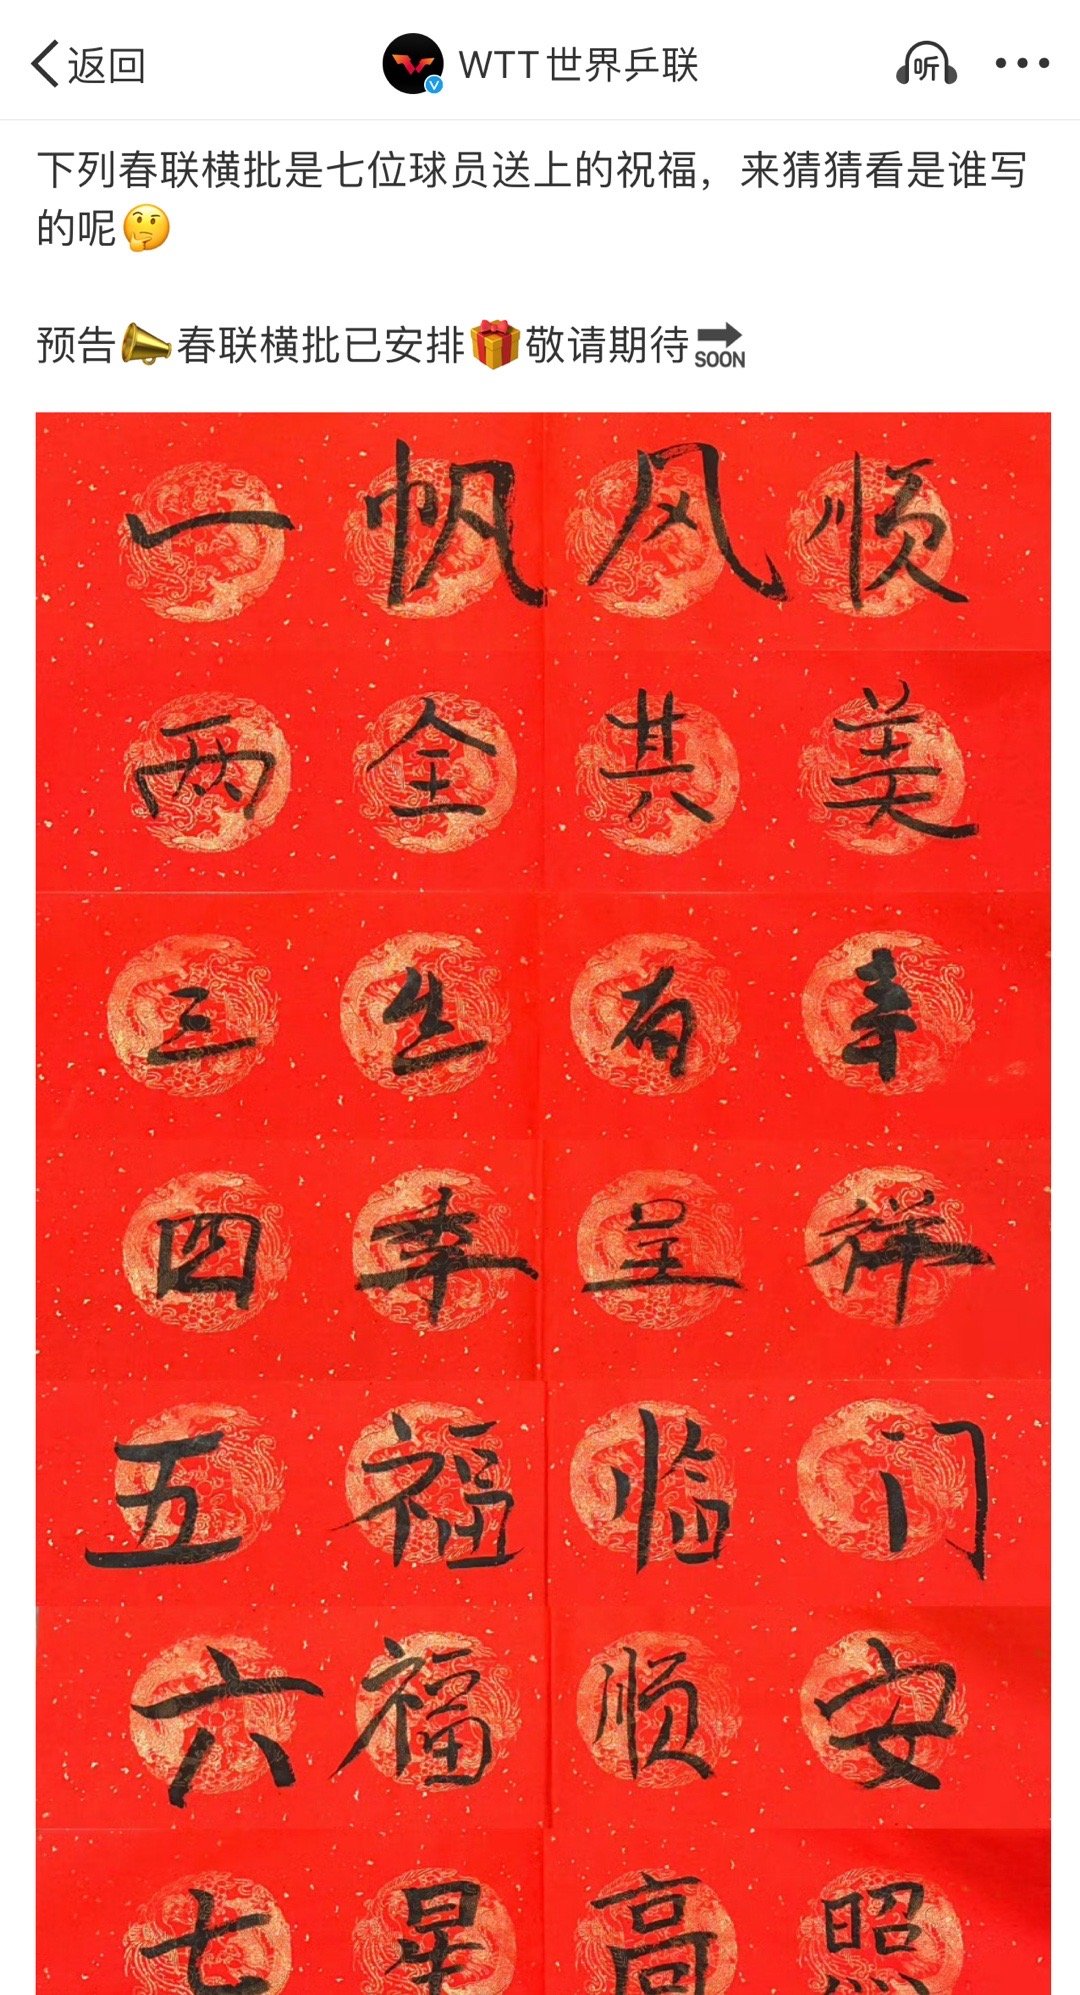 返回
WTT世界乒联
听
下列春联横批是七位球员送上的祝福，来猜猜看是谁写
的呢🤔
预告📣春联横批已安排🎁敬请期待🔜
一帆风顺
两全其美
三生有幸
四季呈祥
五福临门
六福顺安
七星高照